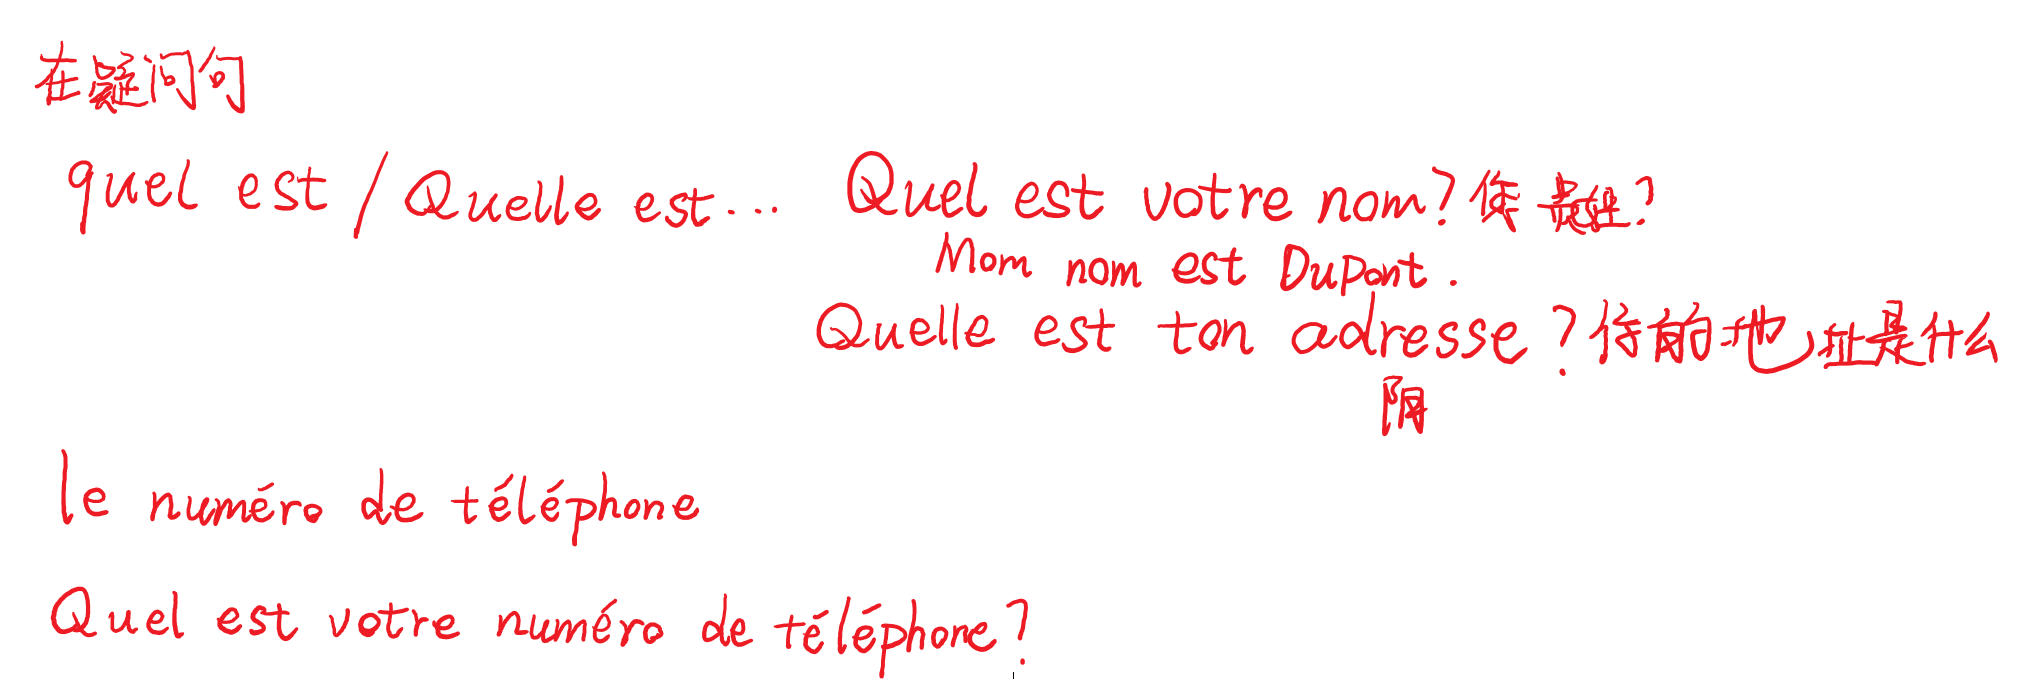 在疑问句
quel est / Quelle est... Quel est votre nom? 你贵姓?
Mom nom est Dupont.
Quelle est ton adresse? 你的地址是什么
阴
le numéro de téléphone
Quel est votre numéro de téléphone?